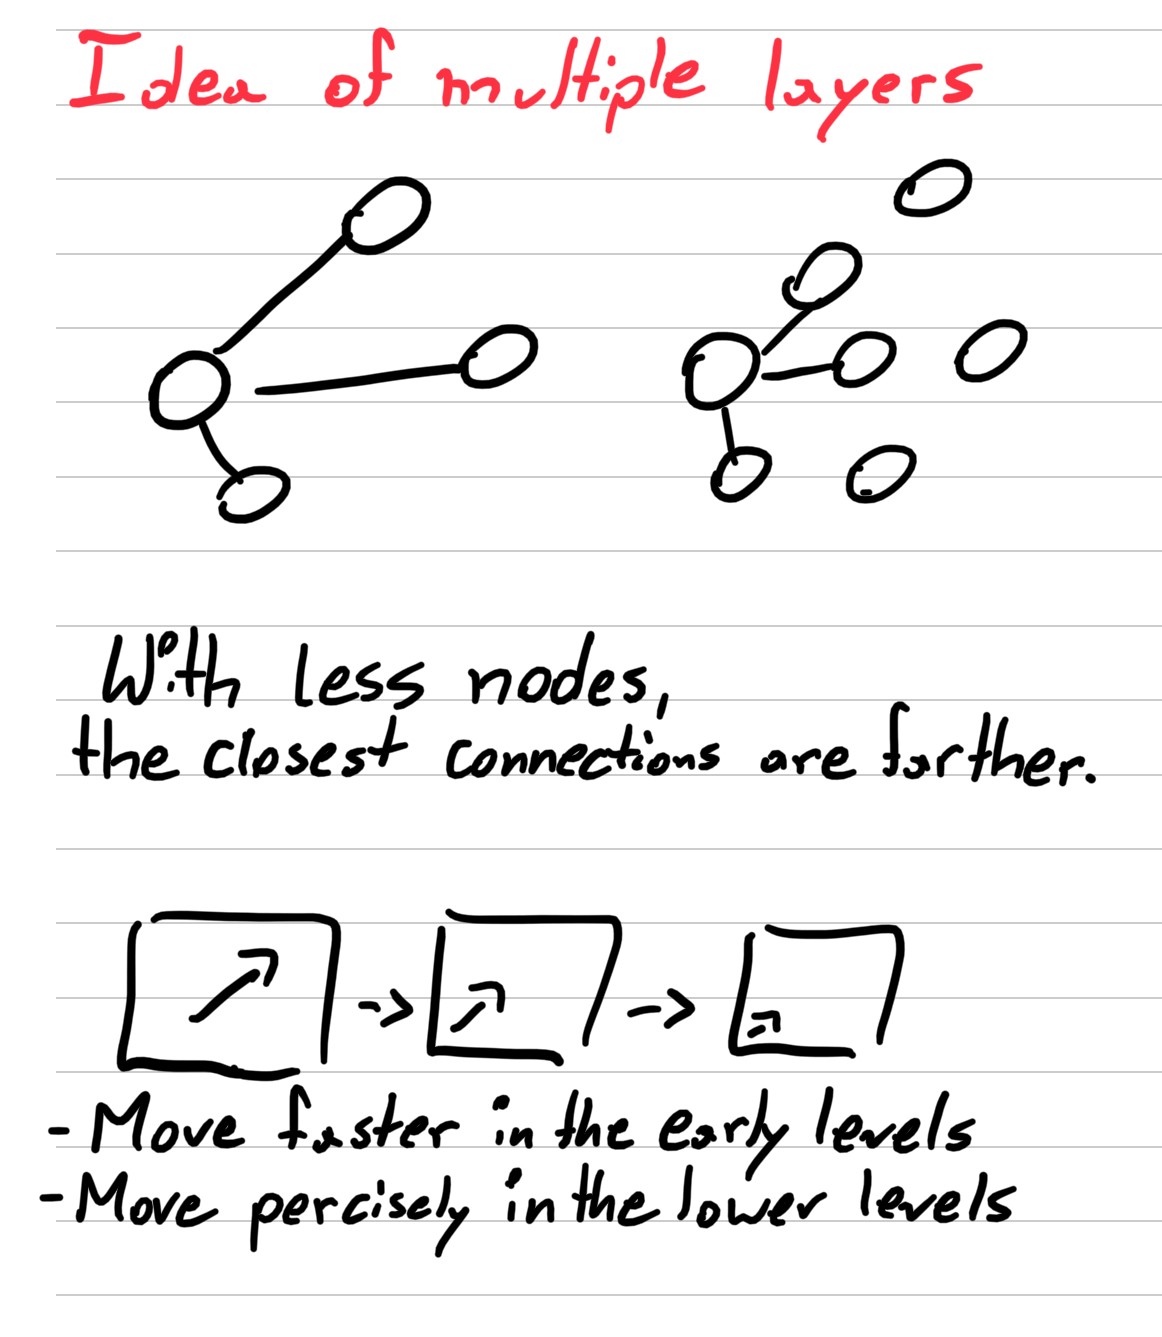 Idea of multiple layers
With less nodes,
the closest connections are farther.
- Move faster in the early levels
- Move percisely in the lower levels